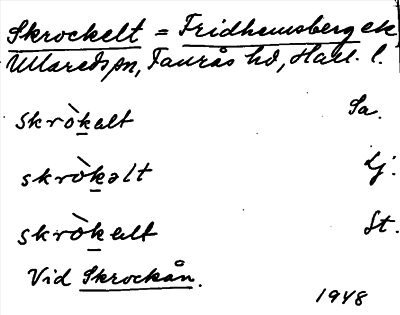 Skrockelt = Fridhemsberg ek,
Ullareds sn, Faurås hd, Hall. l.
skròkalt Sa.
skròkəlt Lj.
skròkelt St.
Vid Skrockån.
1948